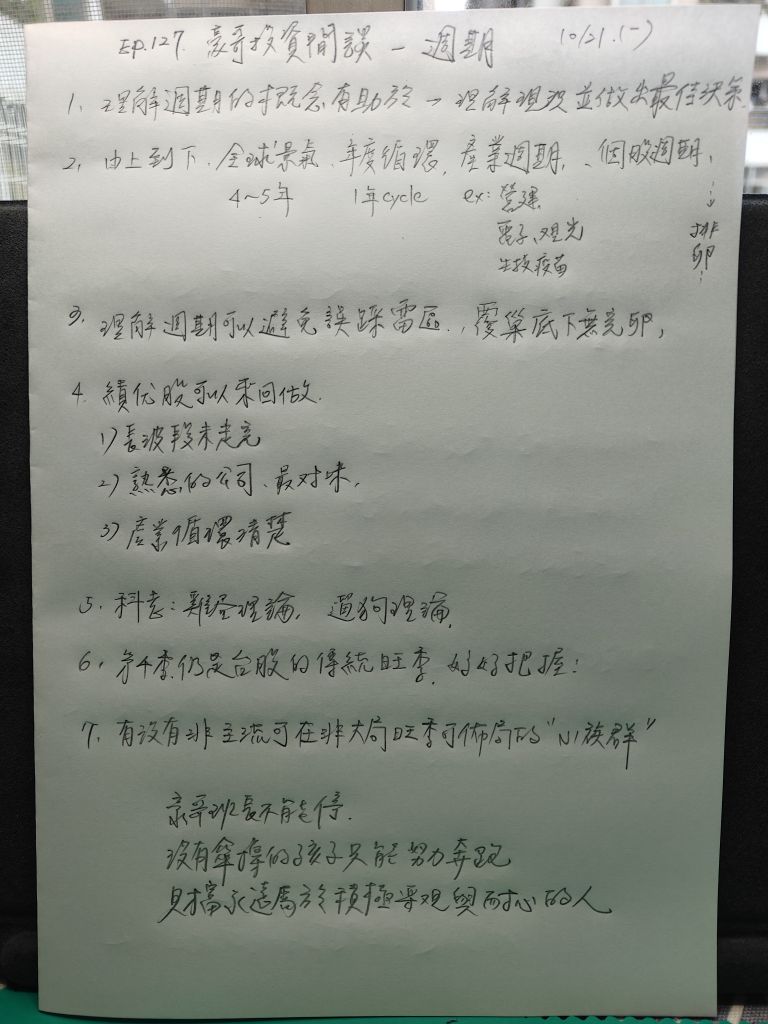 EP.127. 豪哥投資閒談 - 週期 10/21.(一)
1. 理解週期的概念有助於 - 理解現況並做出最佳決策.
2. 由上到下. 全球景氣. 年度循環, 產業週期, 、個股週期,
4~5年 1年cycle ex: 營建
電子、观光
生技疫苗
排
卵
3. 理解週期可以避免誤踩雷區, 覆巢底下無完卵,
4. 績优股可以來回做.
1) 長波段未走完
2) 熟悉的公司、最对味.
3) 產業循環清楚
5. 科老: 雞蛋理論, 遛狗理論.
6. 第4季仍是台股的傳統旺季, 好好把握!
7. 有没有非主流可在非大局旺季可佈局的"N1族群"
豪哥班長不能停.
没有傘撑的孩子只能努力奔跑
財富永遠屬於積極樂观與耐心的人